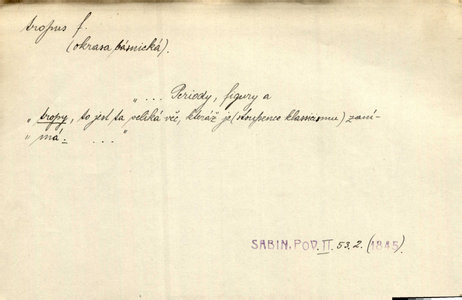 tropus f.
(okrasa básnická).
„ ... Periody, figury a
„ tropy, to jest ta veliká věc, kteráž je (stoupence klamismu) zaní-
„ má. ... "
SABIN. POV. II 53.2. (1845).